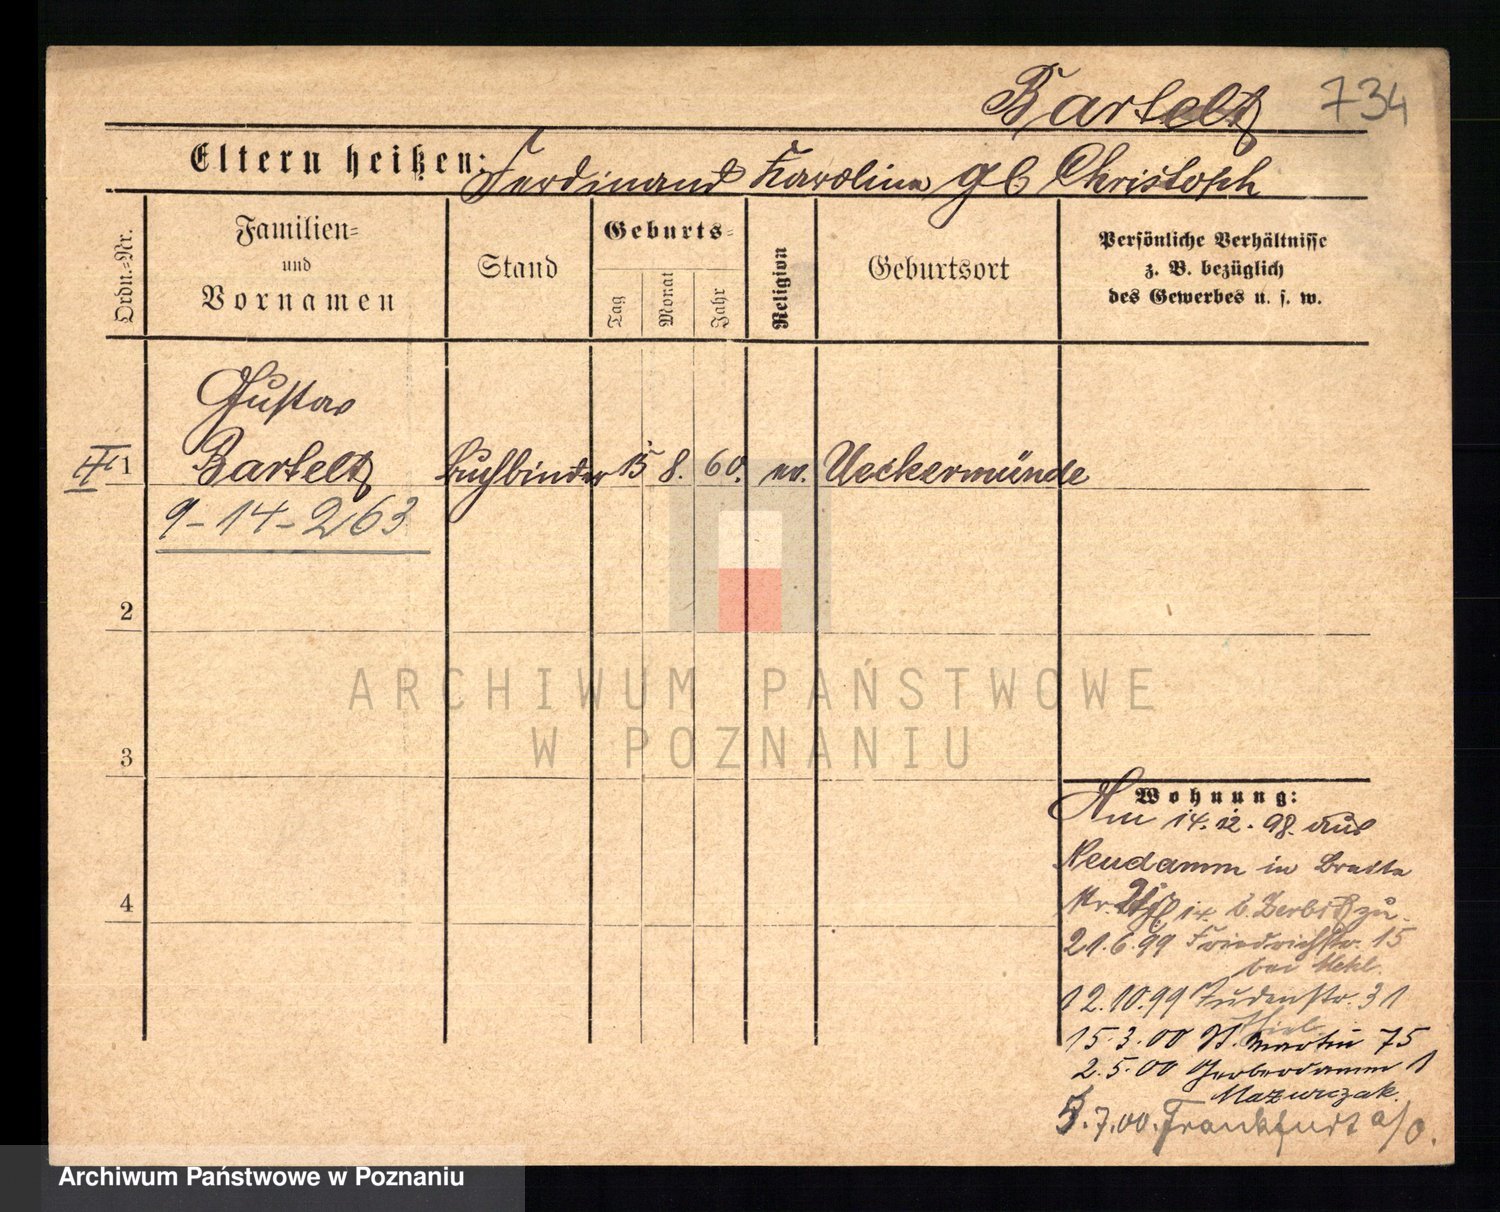 Bartelt 734
Eltern heißen: Ferdinand Karoline gb Christoph
Ordn.-Nr.
Familien-
und
Vornamen
Stand
Geburts-
Tag
Monat
Jahr
Religion
Geburtsort
Persönliche Verhältnisse
z. B. bezüglich
des Gewerbes u. s. w.
Gustav
1 Bartelt Buchbinder 15 8. 60. ev. Ueckermünde
9-14-263
2
3
4
ARCHIWUM PAŃSTWOWE
W POZNANIU
Wohnung:
Am 14.12.98. aus
Neudamm in Breite
Nr. 14 b. Zerbst zu.
21.6.99 Friedrichstr. 15
bei
12.10.99 Judenstr. 31
15.3.00 St. Martin 75
2.5.00 Gerberdamm 1
Mazurczak.
5.7.00. Frankfurt a/O.
Archiwum Państwowe w Poznaniu